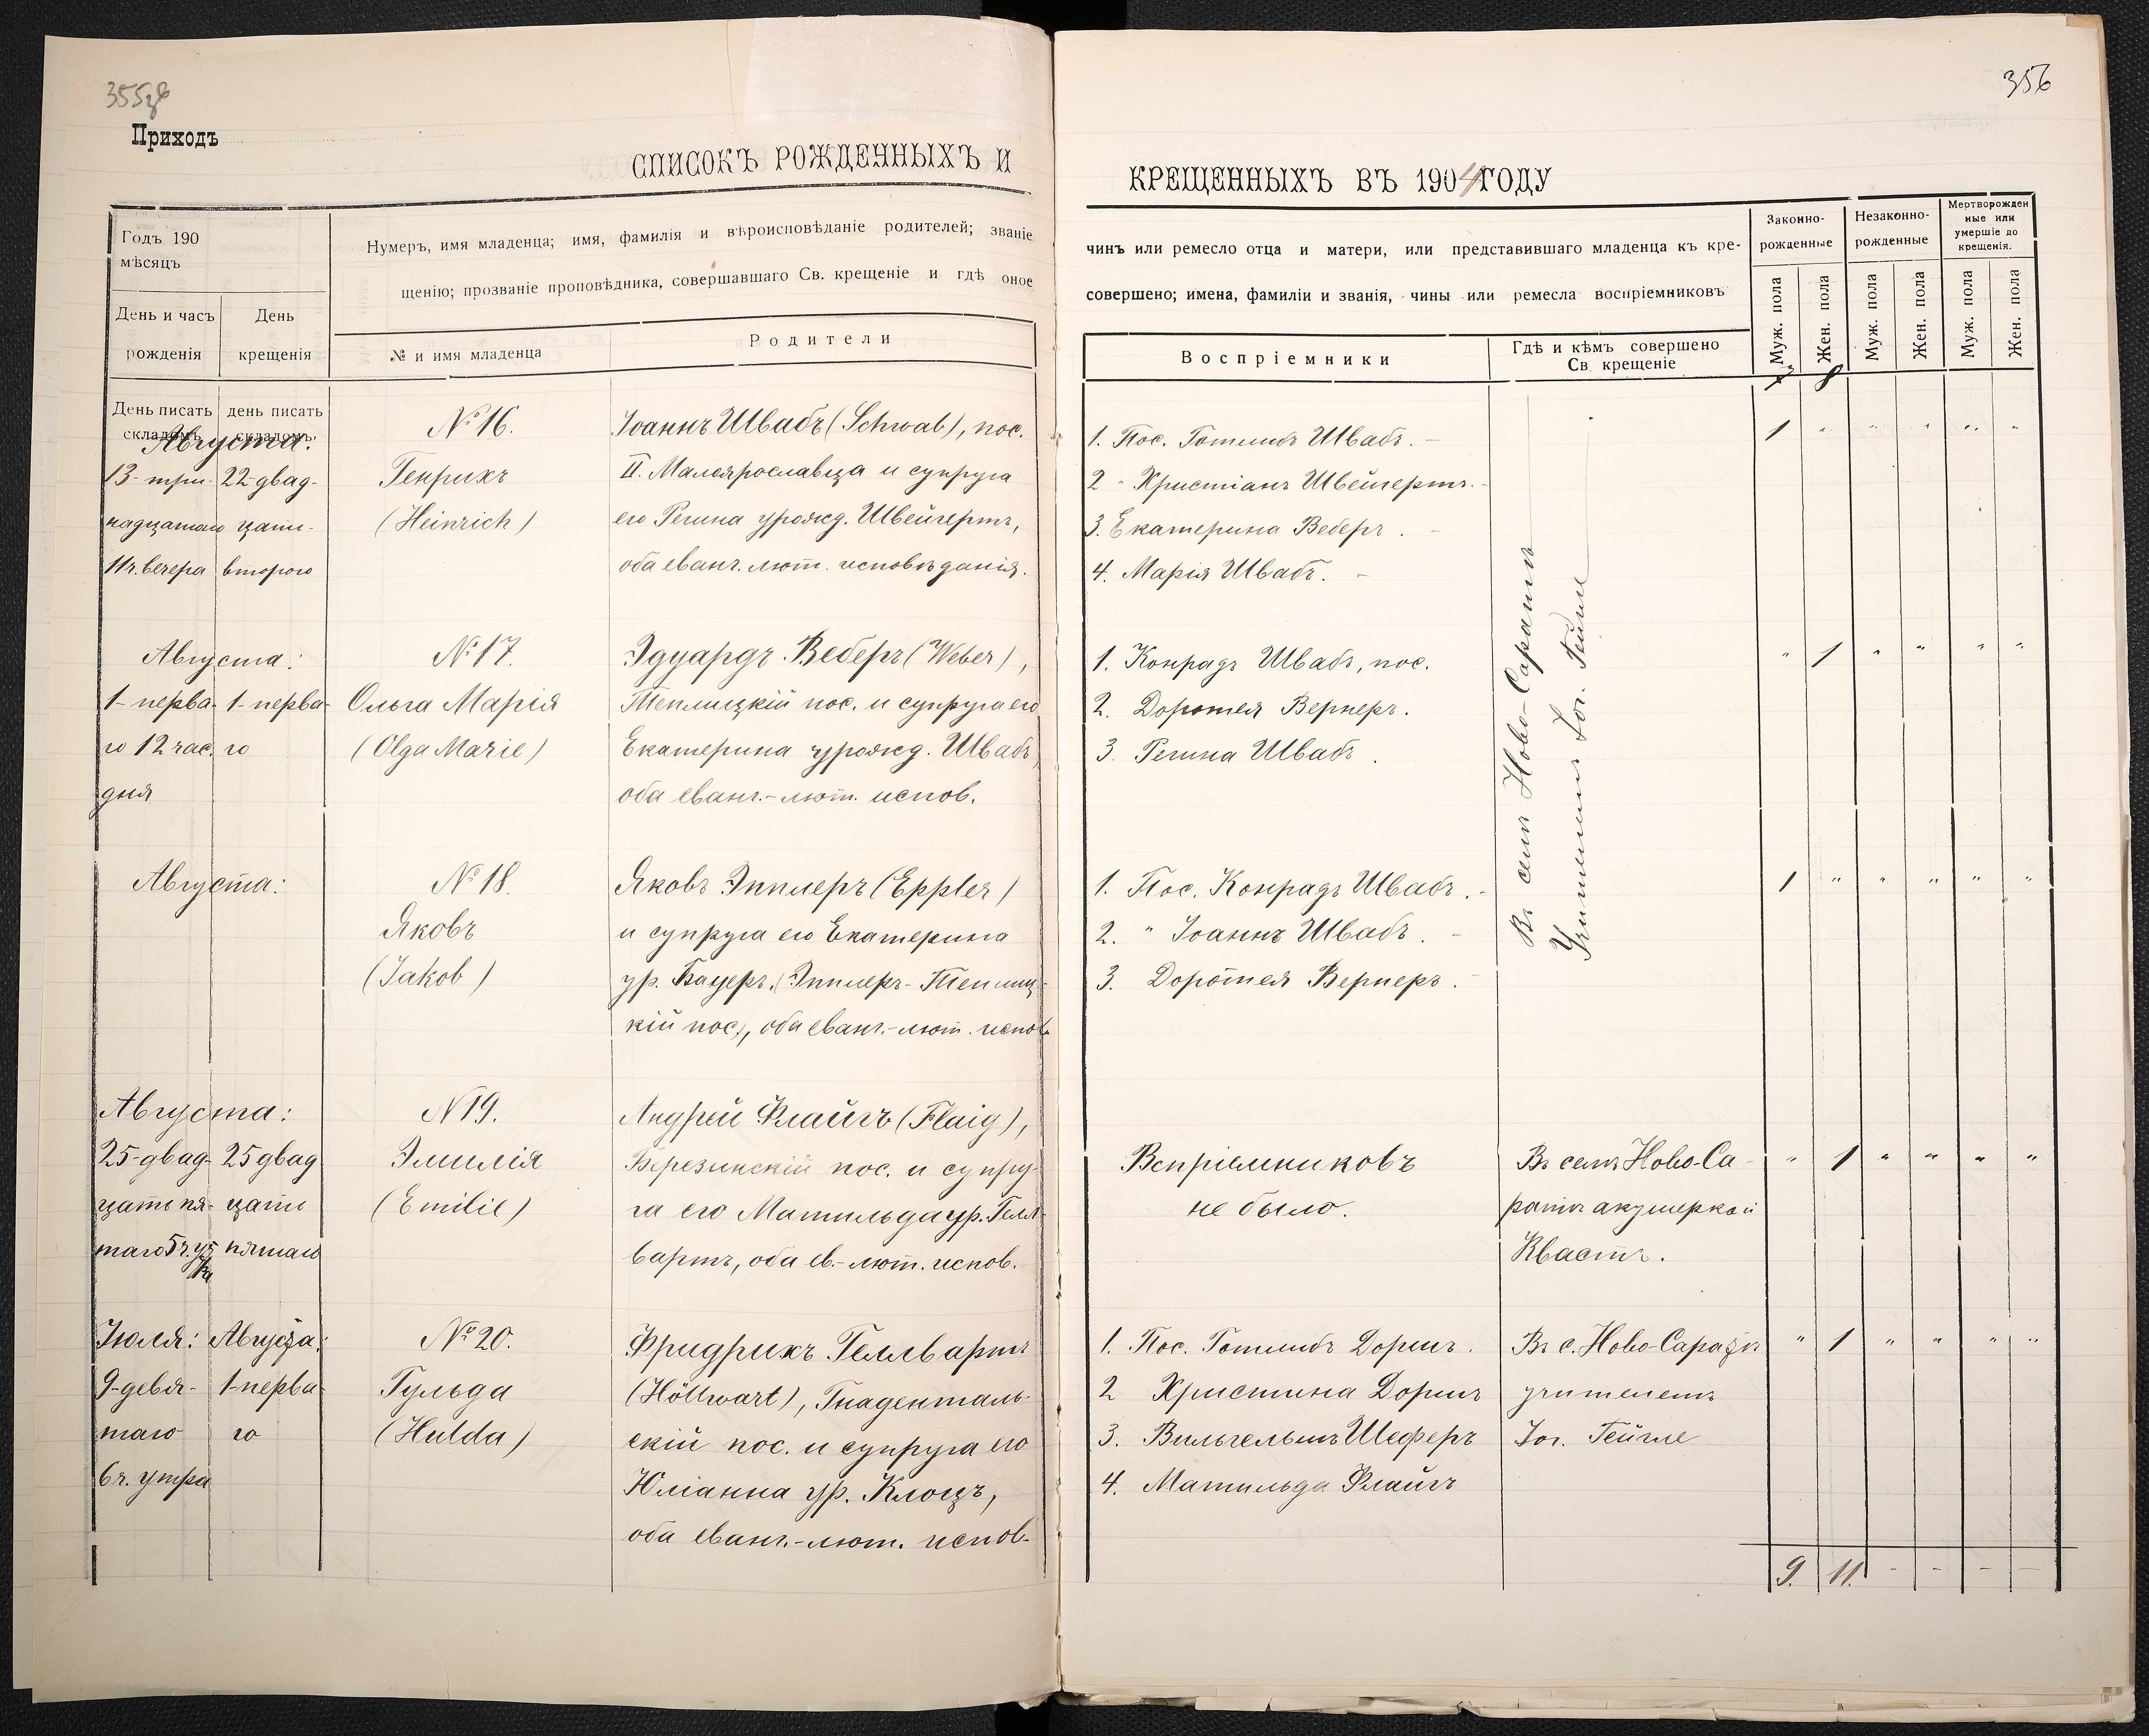 355зв
356
Приходъ
СПИСОКЪ РОЖДЕННЫХЪ И
КРЕЩЕННЫХЪ ВЪ 1904 ГОДУ
Годъ 190
мѣсяцъ
День и часъ
рожденія
День
крещенія
Нумеръ, имя младенца; имя, фамилія и вѣроисповѣданіе родителей; званіе
щенію; прозваніе проповѣдника, совершавшаго Св. крещеніе и гдѣ оное
№ и имя младенца
Родители
чинъ или ремесло отца и матери, или представившаго младенца къ кре-
совершено; имена, фамиліи и званія, чины или ремесла воспріемниковъ
Воспріемники
Гдѣ и кѣмъ совершено
Св. крещеніе
Законно-
рожденные
Незаконно-
рожденные
Мертворожден
ные или
умершіе до
крещенія.
Муж. пола
Жен. пола
Муж. пола
Жен. пола
Муж. пола
Жен. пола
7 8
День писать
складомъ
день писать
складомъ.
Августа:
13- три-
надцатаго
11ч. вечера
22-двад-
цать-
второго
№ 16.
Генрихъ
(Heinrich)
Іоаннъ Швабъ (Schwab), пос.
II. Малоярославца и супруга
его Регина урожд. Швейгертъ,
оба еванг. лют. исповѣданія.
1. Пос. Готлибъ Швабъ. -
2 " Христіанъ Швейгертъ. -
3. Екатерина Веберъ. -
4. Марія Швабъ. -
1 " " " " "
Въ селѣ Ново-Саратѣ
Учителемъ Іог. Гейгле
Августа:
1- перва-
го 12 час.
дня
1- перва-
го
№ 17.
Ольга Марія
(Olga Marie)
Эдуардъ Веберъ (Weber),
Теплицкій пос. и супруга его
Екатерина урожд. Швабъ,
оба еванг.-лют. испов.
1. Конрадъ Швабъ, пос.
2. Доротея Вернеръ.
3. Регина Швабъ.
" 1 " " " "
Августа:
№ 18.
Яковъ
(Jakob)
Яковъ Эпплеръ (Eppler)
и супруга его Екатерина
ур. Бауеръ, (Эпплеръ- Теплиц-
кій пос.), оба еванг.-лют. испов.
1. Пос. Конрадъ Швабъ. -
2. " Іоаннъ Швабъ. -
3. Доротея Вернеръ. -
1 " " " " "
Августа:
25-двад-
цать пя-
таго 5ч. ут
ра
25 двад
цать
пятаго
N 19.
Эмилія
(Emilie)
Андрей Флайгъ (Flaig),
Березинскій пос. и супру-
га его Матильда ур. Гелл-
вартъ, оба ев.-лют. испов.
Вспріемниковъ
не было.
Въ селѣ Ново-Са-
ратѣ акушеркой
Квастъ.
" 1 " " " "
Іюля:
9-девя-
таго
6ч. утра
Августа:
1-перва-
го
№ 20.
Гульда
(Hulda)
Фридрихъ Геллвартъ
(Höllwart), Гнаденталь-
скій пос. и супруга его
Юліанна ур. Клоцъ,
оба еванг.-лют. испов-
1. Пос. Готлибъ Доршъ.
2 Христина Доршъ
3. Вильгельмъ Шеферъ
4. Матильда Флайгъ
Въ с. Ново-Саратѣ
учителемъ
Іог. Гейгле
" 1 " " " "
9. 11. - - - -